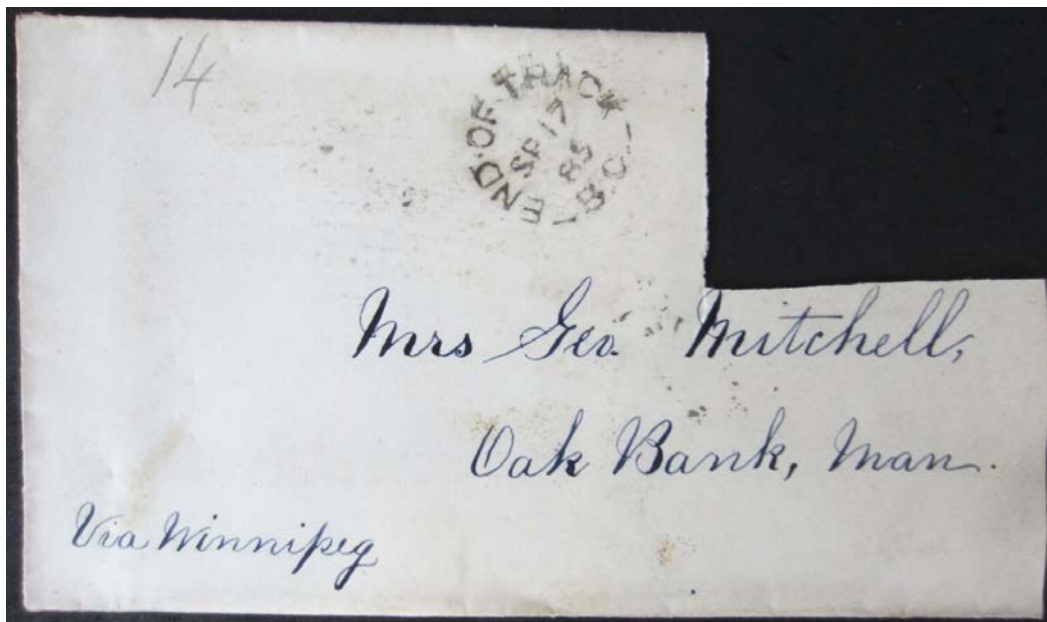 14
END·OF·TRACK-B.C.-
SP 17
85
Mrs Geo. Mitchell,
Oak Bank, Man.
Via Winnipeg